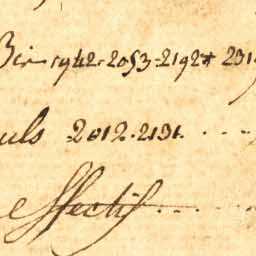 Bir 1942. 2053 - 2192 + 231
uls 2012. 2131. ...
effectif ...